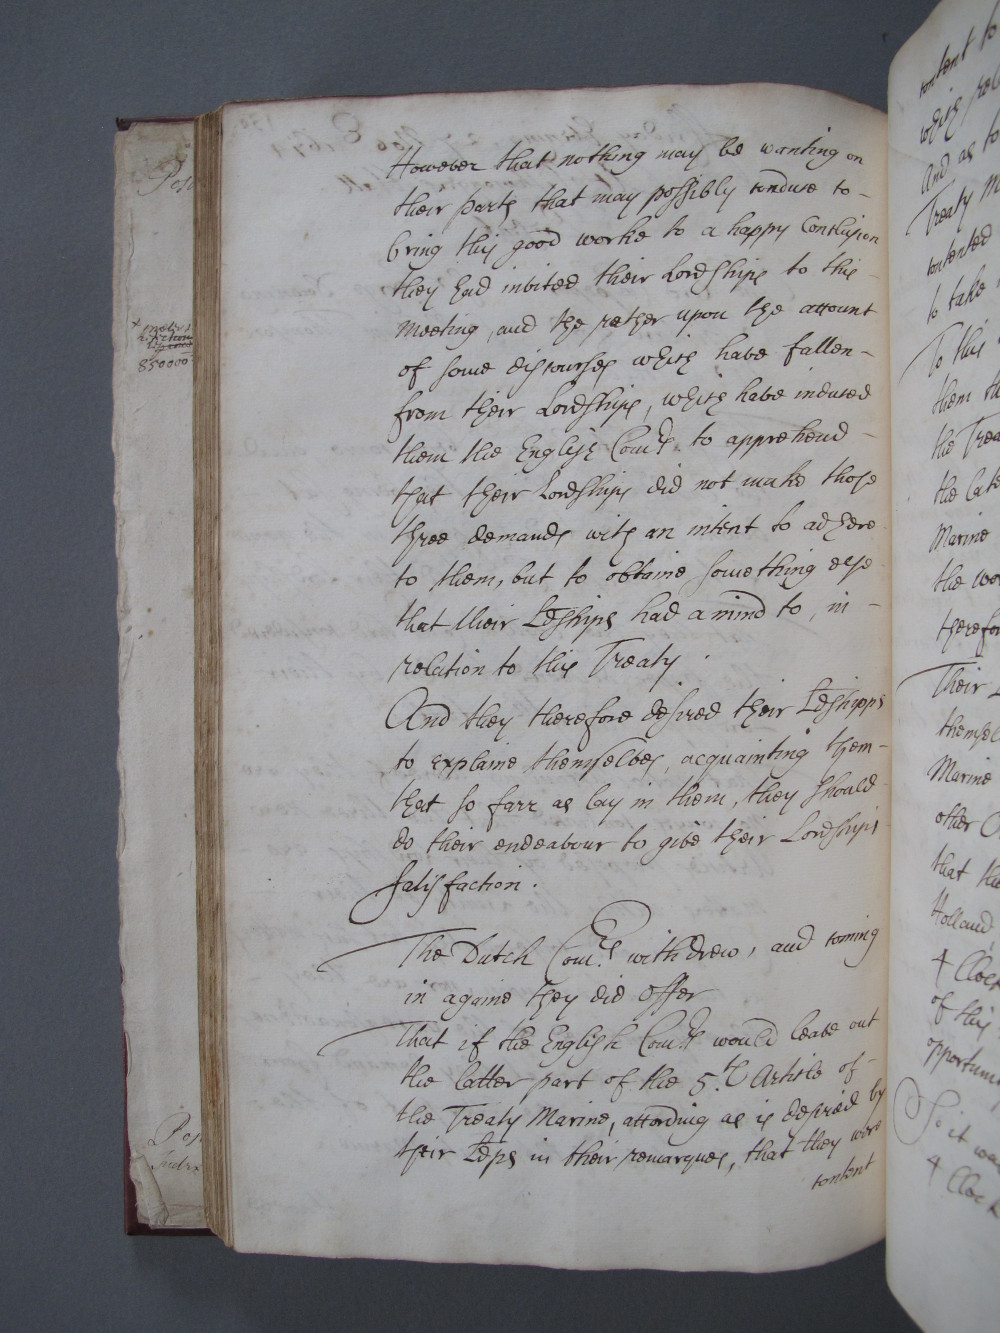 However that nothing may be wanting on
their parts that may possibly conduce to -
bring this good worke to a happy Conclusion
they had invited their Lordships to this -
Meeting, and the rather upon the account
of some discourses which have fallen -
from their Lordships, which have induced
them the English Com.rs to apprehend -
that their Lordships did not make those
three demands with an intent to adhere
to them, but to obtaine something else
that their Ldships had a mind to, in -
relation to this Treaty.
And they therefore desired their Ldshipps
to explaine themselves, acquainting them -
that so farr as lay in them, they should
do their endeavour to give their Lordships
satisfaction.
The Dutch Com.rs withdrew, and coming
in againe they did offer
That if the English Com.rs would leave out
the latter part of the 5.th Article of -
the Treaty Marine, according as is desired by
their Ldps in their remarques, that they were
content
850000
content to
which
And as to
Treaty
contented
to take
To this
them
the Trea
the late
Marine
the
therefor
Their
themsel
Marine
other
that the
Holland,
4 Clock
of this
opportunit
So it was
4 Clock